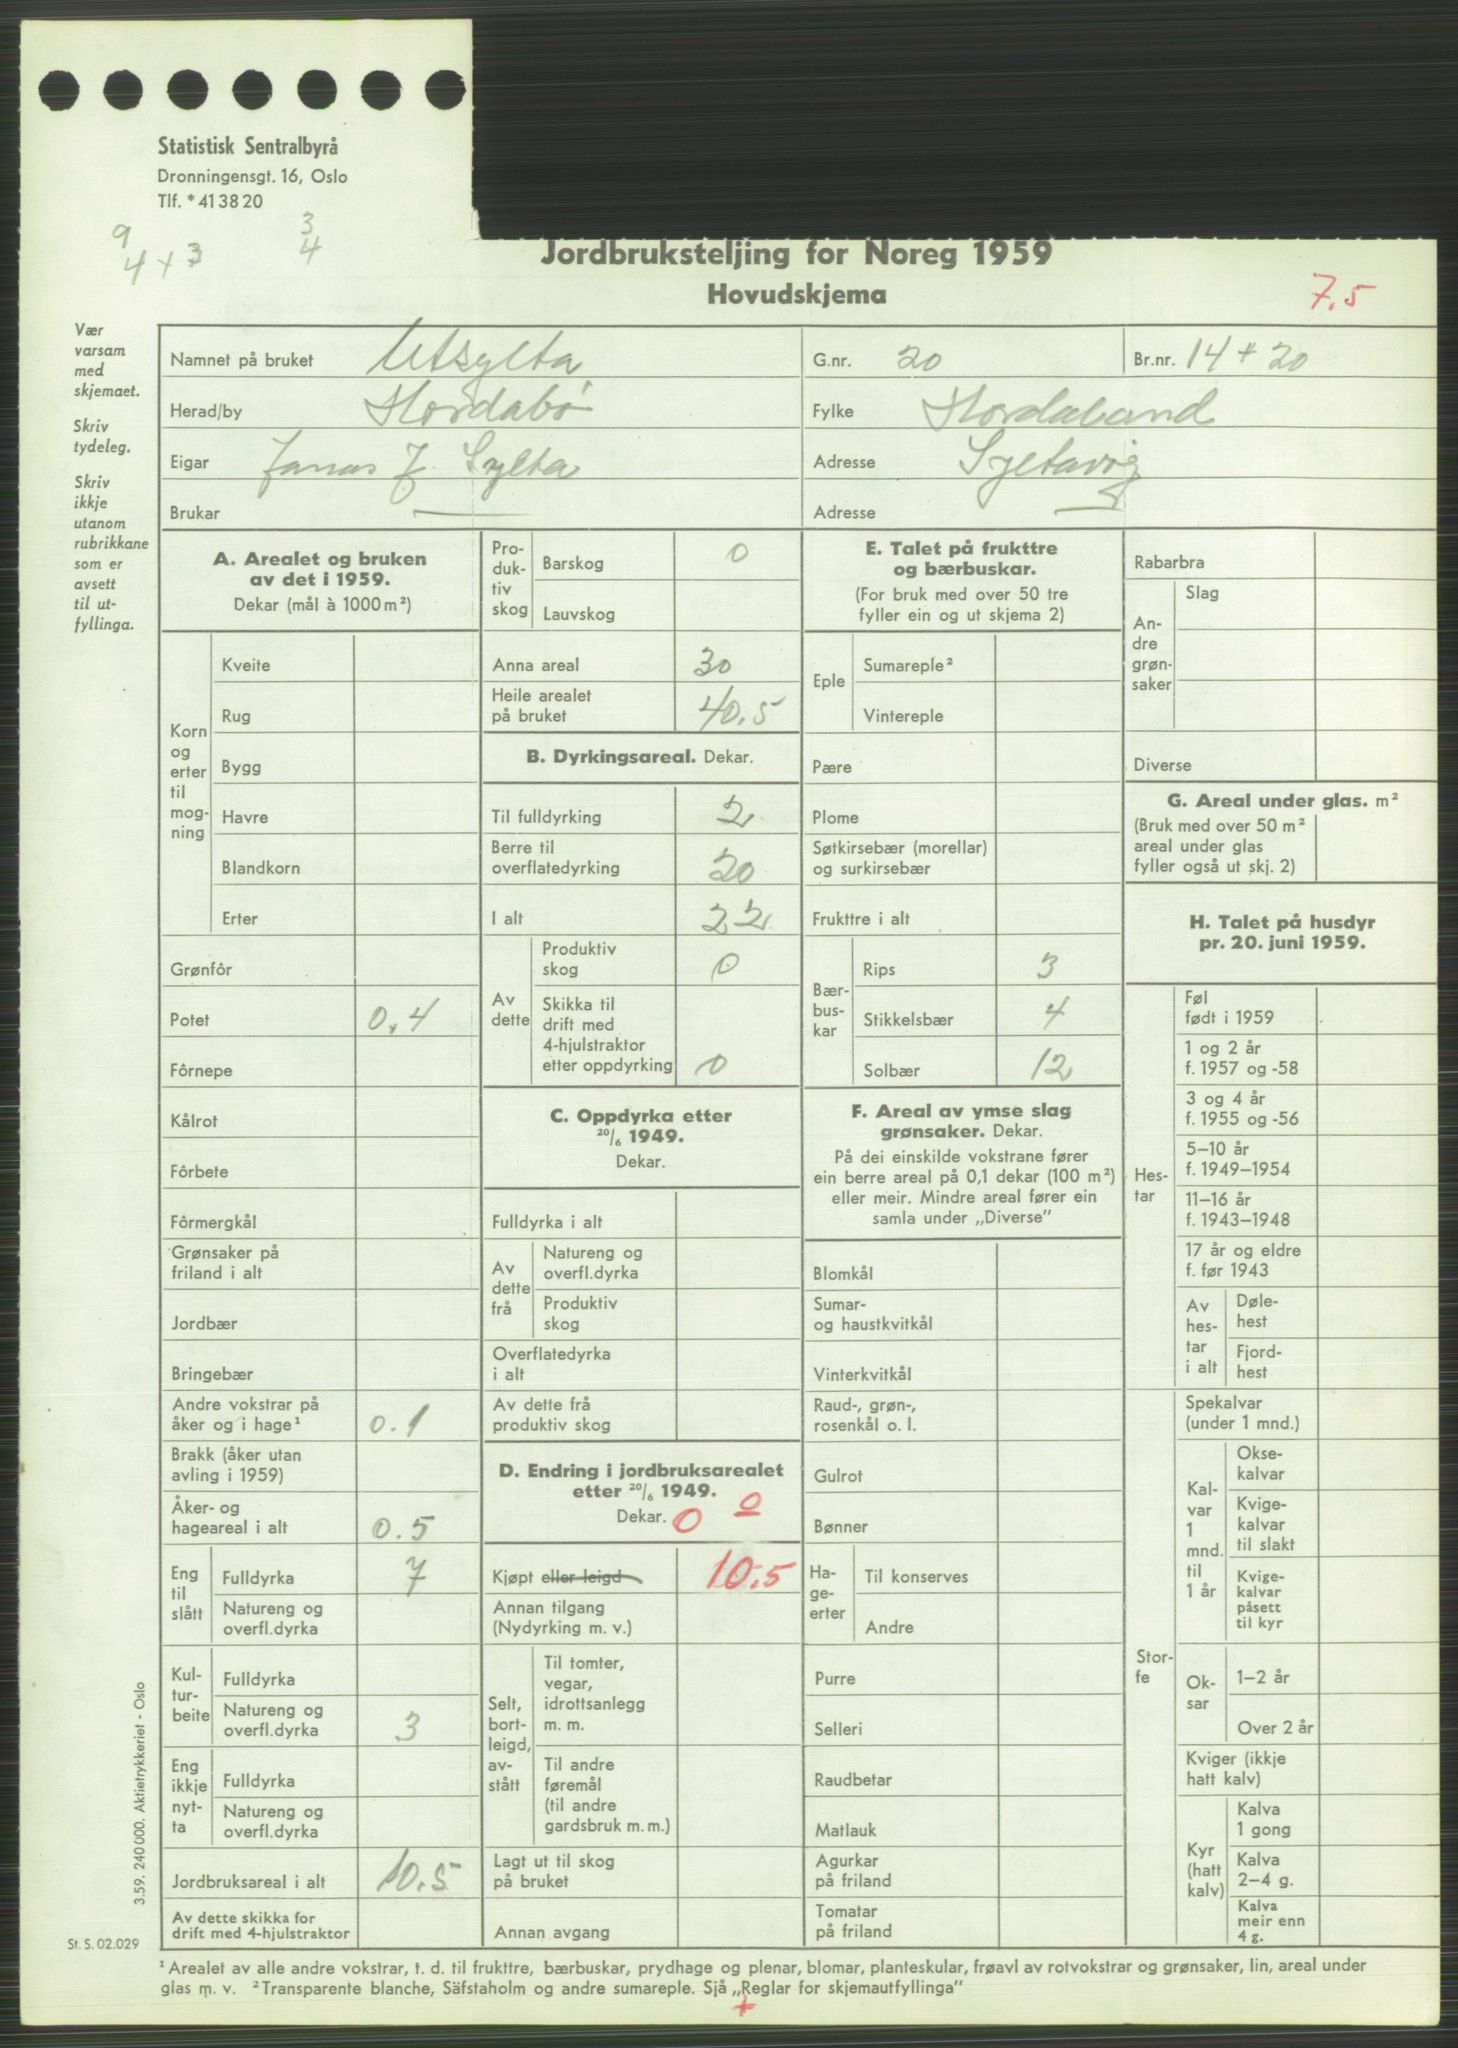 Statistisk Sentralbyrå
Dronningensgt. 16, Oslo
Tlf. *41 38 20
9 3
4 + 3 4
Jordbruksteljing for Noreg 1959
Hovudskjema
7,5
Vær
varsam
med
skjemaet.
Skriv
tydeleg.
Skriv
ikkje
utanom
rubrikkane
som er
avsett
til ut-
fyllinga.
Namnet på bruket Utsylta G.nr. 20 Br.nr. 14 + 20
Herad/by Hordabø Fylke Hordaland
Eigar Jonas J. Sylta Adresse Syltavåg
Brukar Adresse
A. Arealet og bruken
av det i 1959.
Dekar (mål à 1000 m²)
Korn
og
erter
til
mog-
ning
Kveite
Rug
Bygg
Havre
Blandkorn
Erter
Grønfôr
Potet 0,4
Fôrnepe
Kålrot
Fôrbete
Fôrmergkål
Grønsaker på
friland i alt
Jordbær
Bringebær
Andre vokstrar på
åker og i hage¹ 0.1
Brakk (åker utan
avling i 1959)
Åker- og
hageareal i alt 0.5
Eng
til
slått
Fulldyrka 7
Natureng og
overfl.dyrka
Kul-
tur-
beite
Fulldyrka
Natureng og
overfl.dyrka 3
Eng
ikkje
nyt-
ta
Fulldyrka
Natureng og
overfl.dyrka
Jordbruksareal i alt 10.5
Av dette skikka for
drift med 4-hjulstraktor
Pro-
duk-
tiv
skog
Barskog 0
Lauvskog
Anna areal 30
Heile arealet
på bruket 40.5
B. Dyrkingsareal. Dekar.
Til fulldyrking 2
Berre til
overflatedyrking 20
I alt 22
Av
dette
Produktiv
skog 0
Skikka til
drift med
4-hjulstraktor
etter oppdyrking 0
C. Oppdyrka etter
20/6 1949.
Dekar.
Fulldyrka i alt
Av
dette
frå
Natureng og
overfl.dyrka
Produktiv
skog
Overflatedyrka
i alt
Av dette frå
produktiv skog
D. Endring i jordbruksarealet
etter 20/6 1949.
Dekar. 0 0
Kjøpt eller leigd 10.5
Annan tilgang
(Nydyrking m. v.)
Selt,
bort-
leigd,
av-
stått
Til tomter,
vegar,
idrottsanlegg
m. m.
Til andre
føremål
(til andre
gardsbruk m. m.)
Lagt ut til skog
på bruket
Annan avgang
E. Talet på frukttre
og bærbuskar.
(For bruk med over 50 tre
fyller ein og ut skjema 2)
Eple
Sumareple²
Vintereple
Pære
Plome
Søtkirsebær (morellar)
og surkirsebær
Frukttre i alt
Bær-
bus-
kar
Rips 3
Stikkelsbær 4
Solbær 12
F. Areal av ymse slag
grønsaker. Dekar.
På dei einskilde vokstrane fører
ein berre areal på 0,1 dekar (100 m²)
eller meir. Mindre areal fører ein
samla under „Diverse”
Blomkål
Sumar-
og haustkvitkål
Vinterkvitkål
Raud-, grøn-,
rosenkål o. l.
Gulrot
Bønner
Ha-
ge-
erter
Til konserves
Andre
Purre
Selleri
Raudbetar
Matlauk
Agurkar
på friland
Tomatar
på friland
Rabarbra
An-
dre
grøn-
saker
Slag
Diverse
G. Areal under glas. m²
(Bruk med over 50 m²
areal under glas
fyller også ut skj. 2)
H. Talet på husdyr
pr. 20. juni 1959.
Hes-
tar
Føl
født i 1959
1 og 2 år
f. 1957 og -58
3 og 4 år
f. 1955 og -56
5–10 år
f. 1949–1954
11–16 år
f. 1943–1948
17 år og eldre
f. før 1943
Av
hes-
tar
i alt
Døle-
hest
Fjord-
hest
Stor-
fe
Spekalvar
(under 1 mnd.)
Kal-
var
1
mnd.
til
1 år
Okse-
kalvar
Kvige-
kalvar
til slakt
Kvige-
kalvar
påsett
til kyr
Ok-
sar
1–2 år
Over 2 år
Kviger (ikkje
hatt kalv)
Kyr
(hatt
kalv)
Kalva
1 gong
Kalva
2–4 g.
Kalva
meir enn
4 g.
3.59. 240 000. Aktietrykkeriet - Oslo
St. S. 02.029
¹ Arealet av alle andre vokstrar, t. d. til frukttre, bærbuskar, prydhage og plenar, blomar, planteskular, frøavl av rotvokstrar og grønsaker, lin, areal under
glas m. v. ² Transparente blanche, Säfstaholm og andre sumareple. Sjå „Reglar for skjemautfyllinga”
+